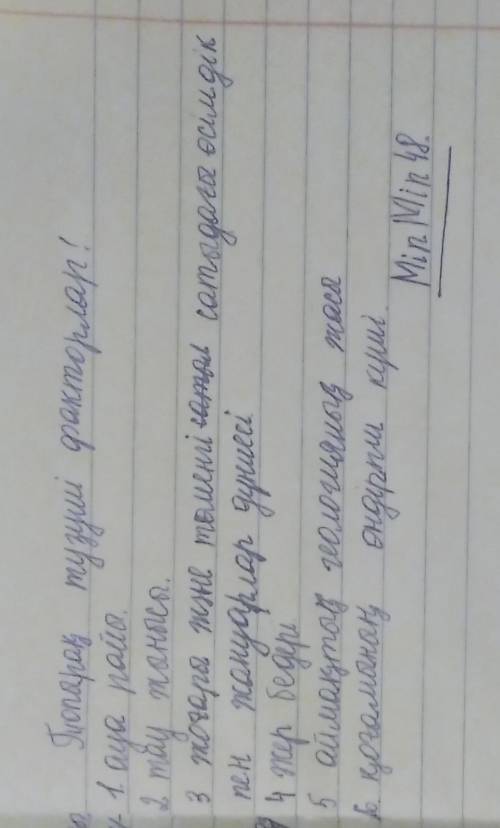 Топарақ түзуші факторлар!
1. ауа райы.
2 тау жынысы.
3 жоғары және төменгі сатыдағы өсімдік
пен жануарлар дүниесі
4 жер бедері
5 аймақтың геологиялық жасы
6. қоғамының өндіргіш күші.
Min Min 48.